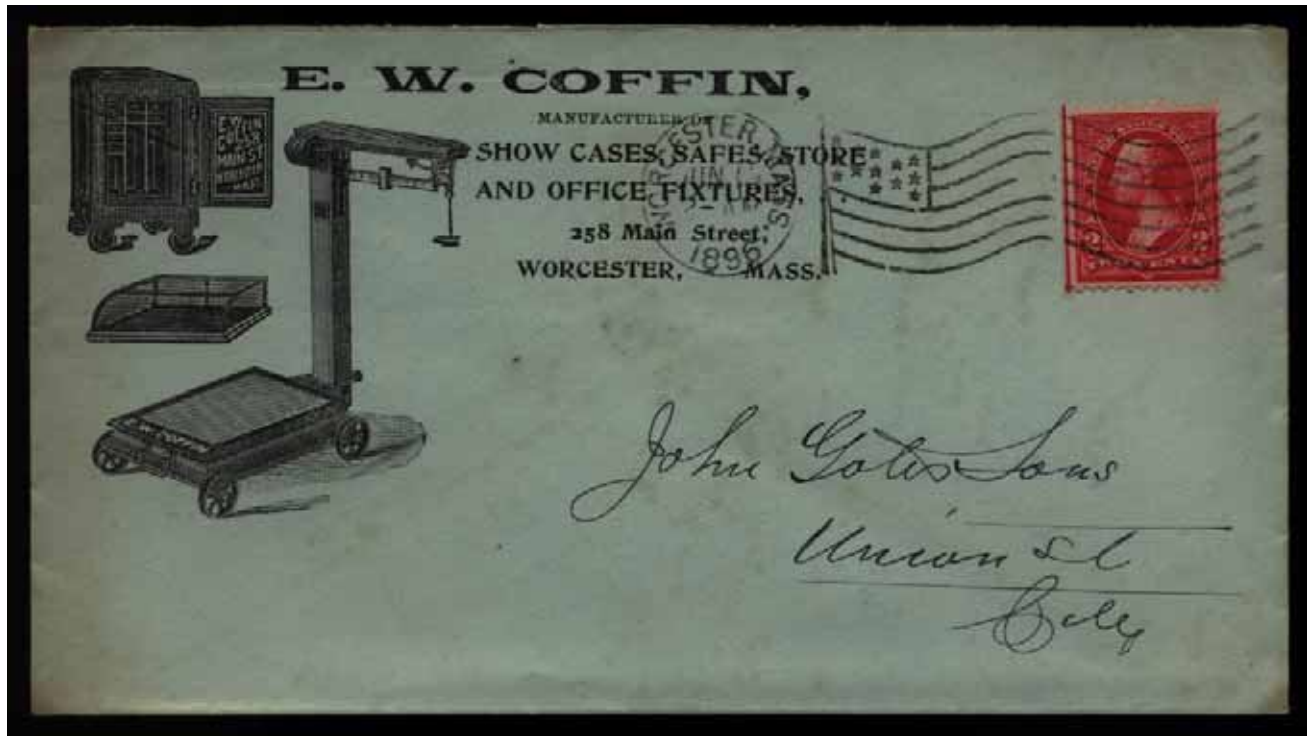 E. W. COFFIN,
MANUFACTURER OF
SHOW CASES, SAFES, STORE
AND OFFICE FIXTURES,
258 Main Street,
WORCESTER, MASS.
WORCESTER, MASS
JUN
1896
E. W. COFFIN
MAIN ST.
WORCESTER
MASS.
2 2
John Gates Sons
Union St
City